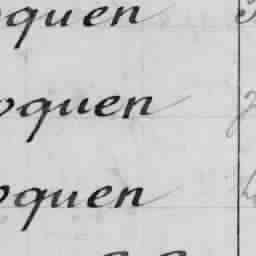 oquen
oquen
oquen